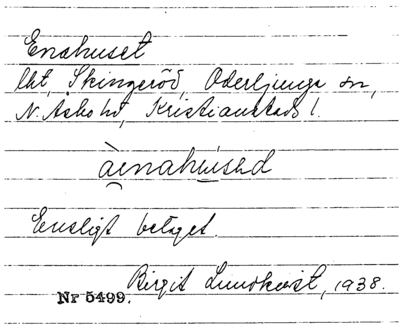 Enahuset
lht, Skingeröd, Oderljunga sn,
N. Åsbo hd, Kristianstads l.
àenahuisəd
Ensligt beläget.
Birgit Lundkvist, 1938.
Nr 5499.